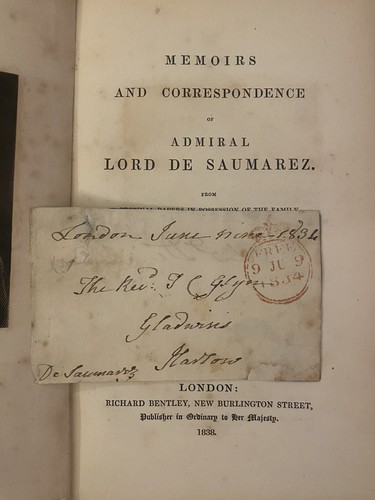 MEMOIRS
AND CORRESPONDENCE
OF
ADMIRAL
LORD DE SAUMAREZ.
FROM
ORIGINAL PAPERS IN POSSESSION OF THE FAMILY.
London June nine 1834
FREE
9 JU 9
1834
The Revd. T C Glyn
Gladwins
Harlow
De Saumarez
LONDON:
RICHARD BENTLEY, NEW BURLINGTON STREET,
Publisher in Ordinary to Her Majesty.
1838.